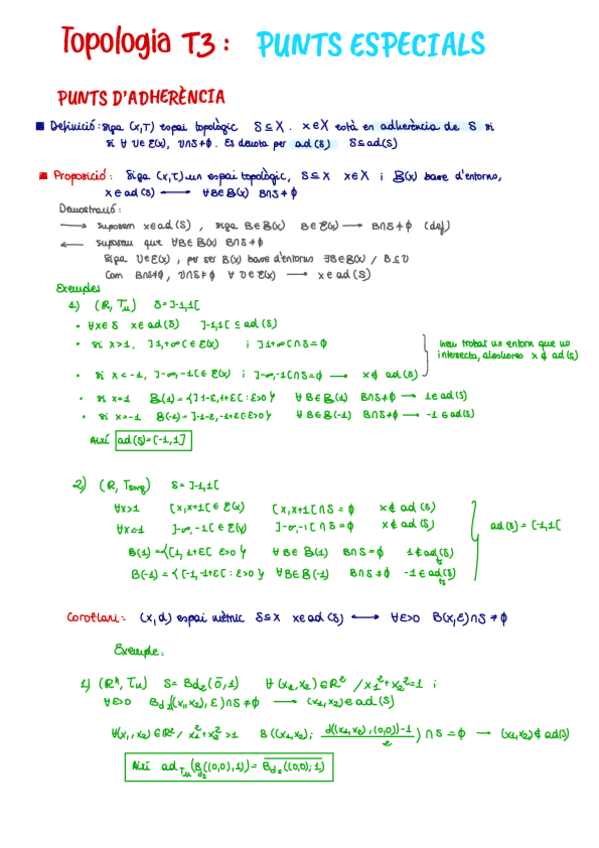 Topologia T3: PUNTS ESPECIALS
PUNTS D'ADHERÈNCIA
Definició: Siga (X,T) espai topològic S⊆X. x∈X està en adherència de S si
si ∀ U∈E(x), U∩S≠ϕ. Es denota per ad(S) S⊆ad(S)
Proposició: Siga (X,T) un espai topològic, S⊆X x∈X i B(x) base d'entorns,
x∈ad(S) ⟷ ∀B∈B(x) B∩S≠ϕ
Demostració:
⟶ suposem x∈ad(S), siga B∈B(x) B∈E(x) ⟶ B∩S≠ϕ (def)
⟵ suposem que ∀B∈B(x) B∩S≠ϕ
Siga U∈E(x), per ser B(x) base d'entorns ∃B∈B(x) / B⊆U
Com B∩S≠ϕ, U∩S≠ϕ ∀ U∈E(x) ⟶ x∈ad(S)
Exemples
1) (R, Tu) S=]-1,1[
• ∀x∈S x∈ad(S) ]-1,1[ ⊆ad(S)
• si x>1, ]1,+∞[∈E(x) i ]1+∞[∩S=ϕ
heu trobat un entorn que no
intersecta, aleshores x∉ad(S)
• si x<-1, ]-∞,-1[∈E(x) i ]-∞,-1[∩S=ϕ ⟶ x∉ad(S)
• si x=1 B(1)={]1-ε,1+ε[:ε>0} ∀B∈B(1) B∩S≠ϕ ⟶ 1∈ad(S)
• si x=-1 B(-1)=]-1-ε,-1+ε[:ε>0} ∀B∈B(-1) B∩S≠ϕ ⟶ -1∈ad(S)
Així ad(S)=[-1,1]
2) (R, Tsorg) S=]-1,1[
∀x>1 [x,x+1[∈E(x) [x,x+1[∩S=ϕ x∉ad(S)
∀x<-1 ]-∞,-1[∈E(x) ]-∞,-1[∩S=ϕ x∉ad(S)
ad(S)=[-1,1[
B(1)={[1,1+ε[ ε>0} ∀B∈B(1) B∩S=ϕ 1∉ad(S)
B(-1)={[-1,-1+ε[:ε>0} ∀B∈B(-1) B∩S≠ϕ -1∈ad(S)
Corol·lari: (X,d) espai mètric S⊆X x∈ad(S) ⟷ ∀ε>0 B(x,ε)∩S≠ϕ
Exemple:
1) (Rⁿ, Tu) S=Bd₂(0̄,1) ∀(x₁,x₂)∈R² / x₁²+x₂²=1 i
∀ε>0 Bd₂((x₁,x₂),ε)∩S≠ϕ ⟶ (x₁,x₂)∈ad(S)
∀(x₁,x₂)∈R² / x₁²+x₂²>1 B((x₁,x₂); d((x₁,x₂),(0,0))-1 / 2)∩S=ϕ ⟶ (x₁,x₂)∉ad(S)
Així ad Tu(Bd₂((0,0),1))=B̅d₂((0,0);1)